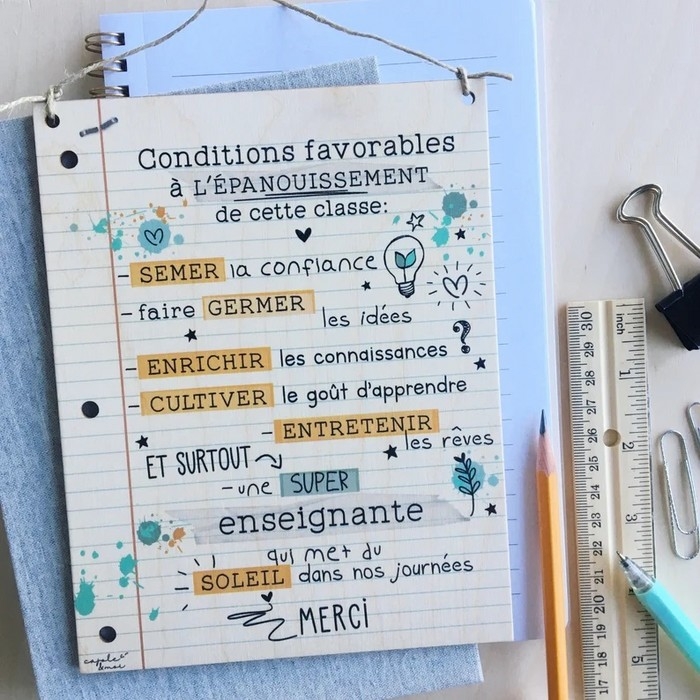 Conditions favorables
à L'ÉPANOUISSEMENT
de cette classe:
- SEMER la confiance
- faire GERMER les idées
?
- ENRICHIR les connaissances
- CULTIVER le goût d'apprendre
- ENTRETENIR
les rêves
ET SURTOUT
- une SUPER
enseignante
qui met du
SOLEIL dans nos journées
MERCI
inch
1
2
3
5
30
29
28
27
26
25
24
23
22
21
20
19
18
17